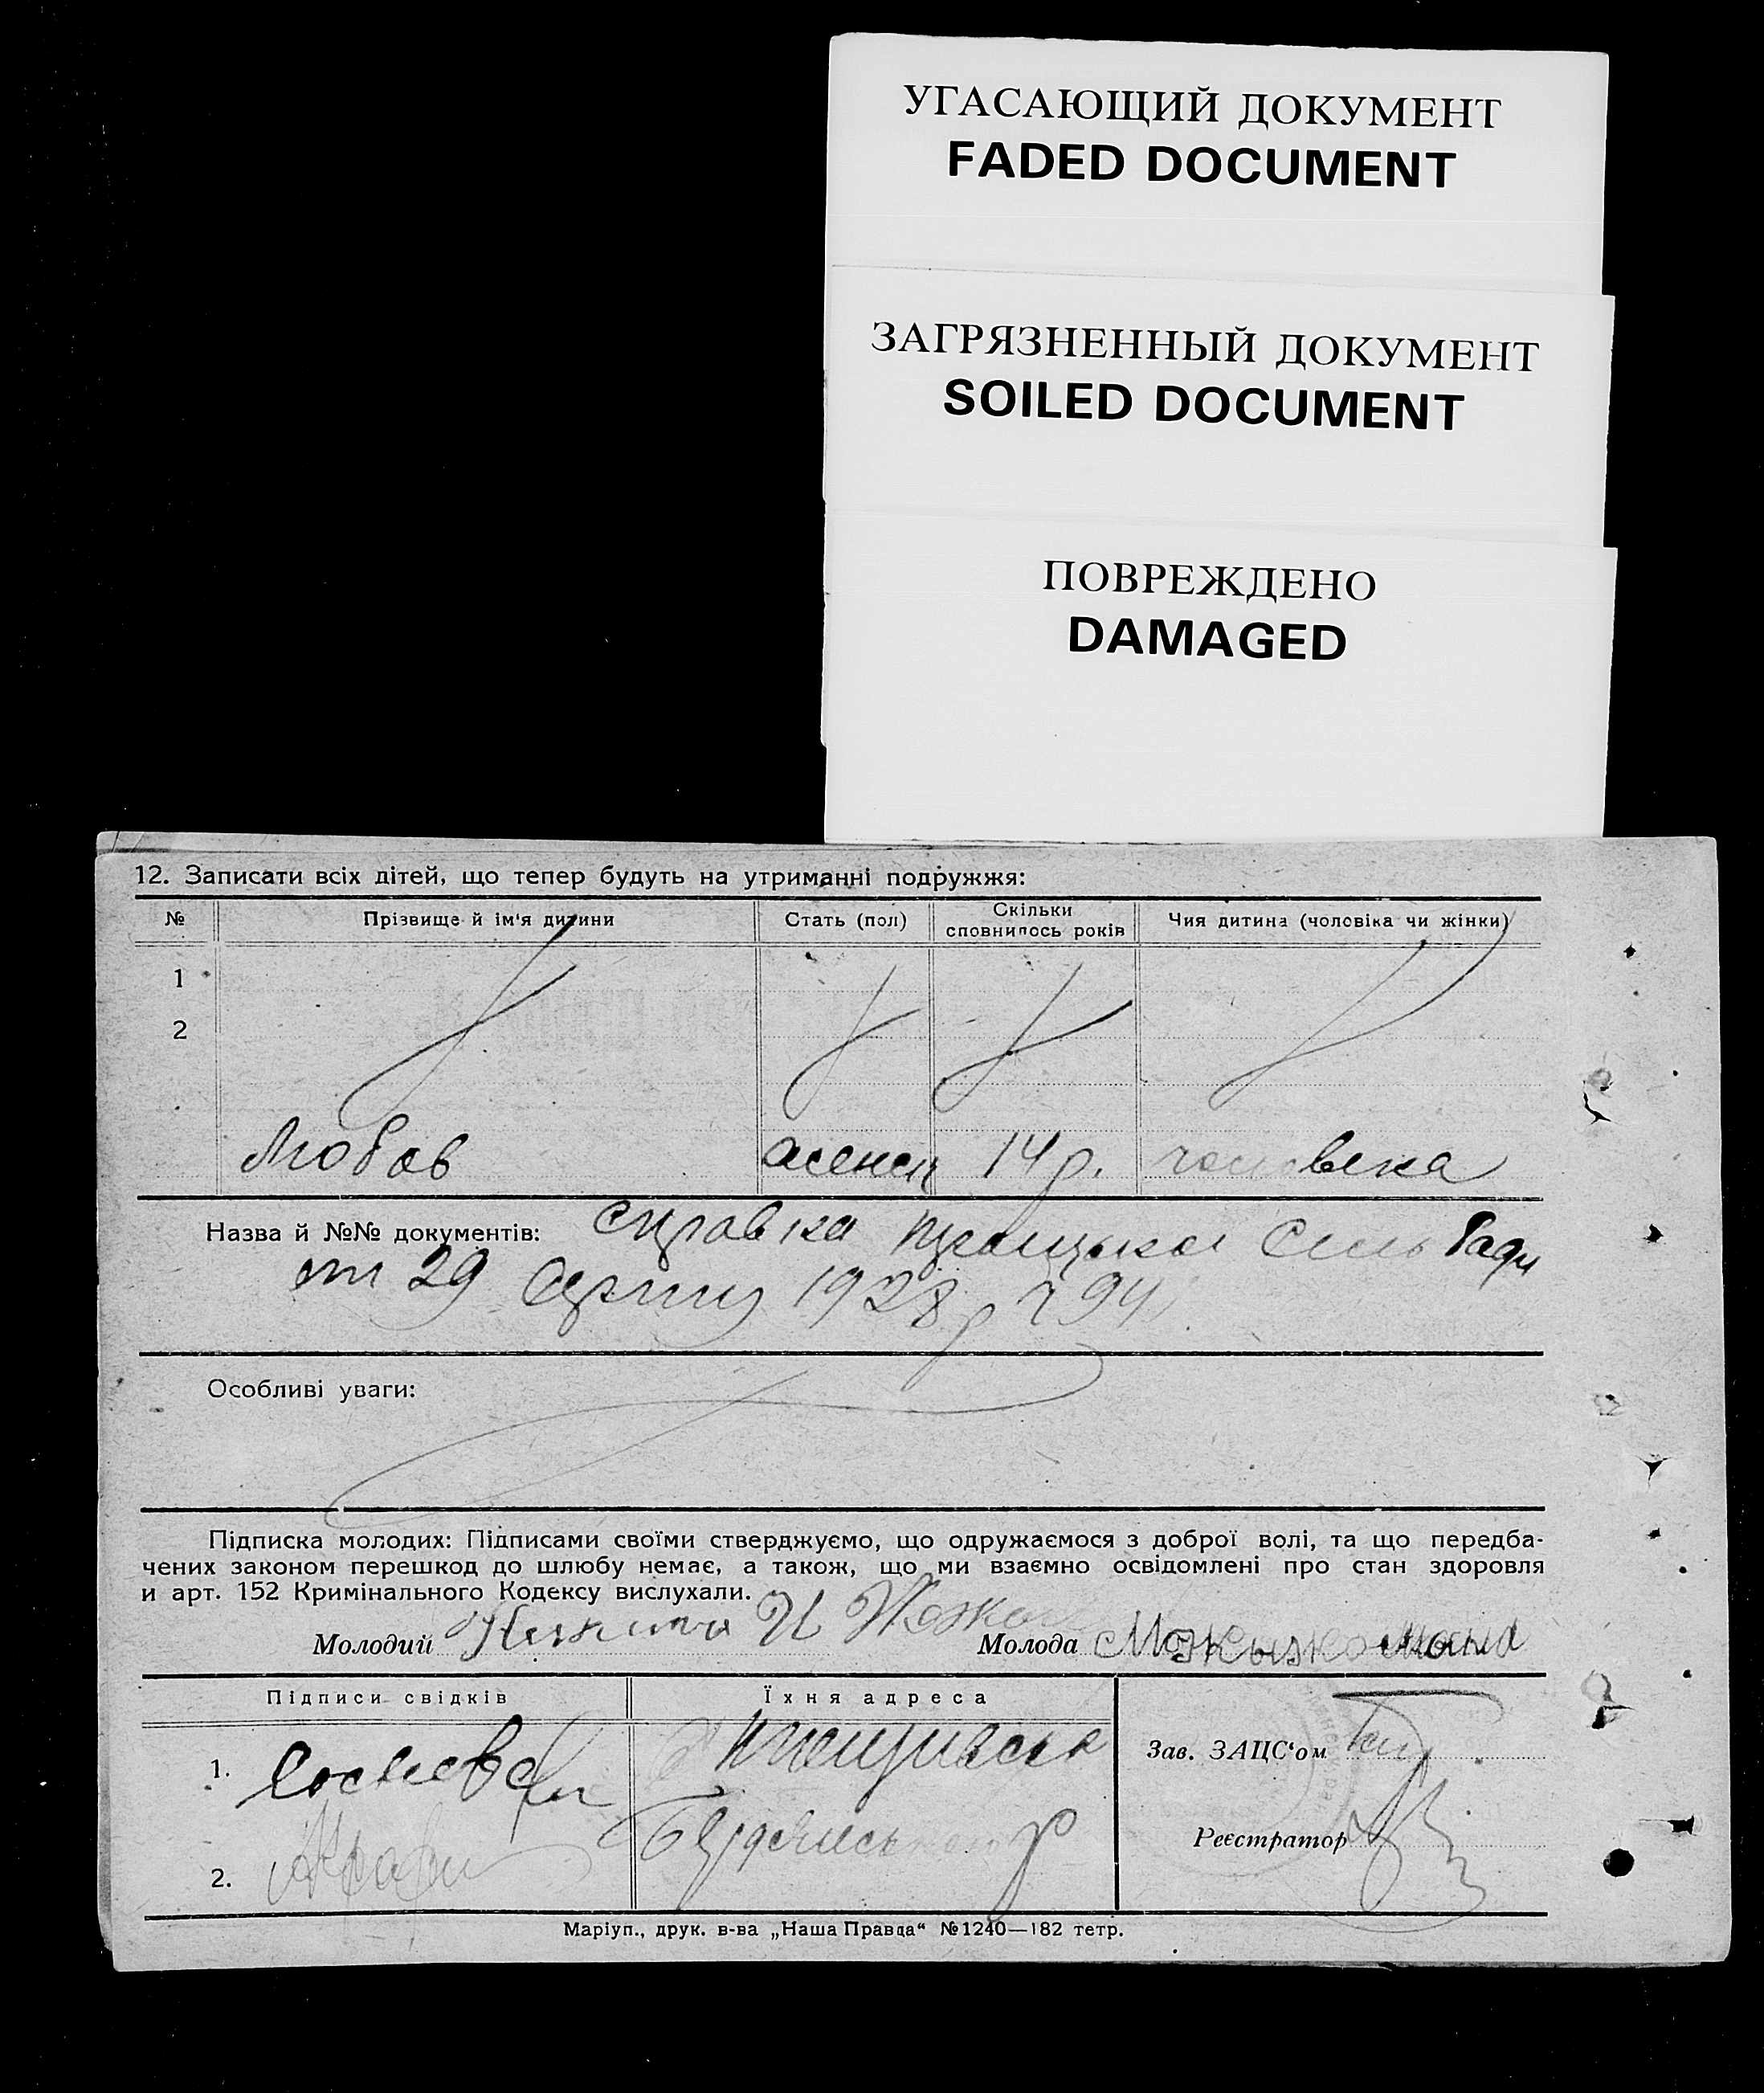 УГАСАЮЩИЙ ДОКУМЕНТ
FADED DOCUMENT
ЗАГРЯЗНЕННЫЙ ДОКУМЕНТ
SOILED DOCUMENT
ПОВРЕЖДЕНО
DAMAGED
12. Записати всіх дітей, що тепер будуть на утриманні подружжя:
№ Прізвище й ім'я дитини Стать (пол) Скільки сповнилось років Чия дитина (чоловіка чи жінки)
1
2
Любов женск 14 р. человека
Назва й №№ документів: Справка Сель Ради
от 29 1928 р 794
Особливі уваги:
Підписка молодих: Підписами своїми стверджуємо, що одружаємося з доброї волі, та що передба-
чених законом перешкод до шлюбу немає, а також, що ми взаємно освідомлені про стан здоровля
и арт. 152 Кримінального Кодексу вислухали.
Молодий Никита И Молода
Підписи свідків Їхня адреса
1.
Зав. ЗАЦС'ом
Реєстратор
2.
Маріуп., друк. в-ва „Наша Правда“ №1240—182 тетр.